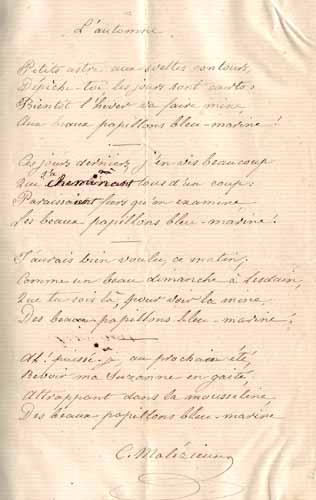 L'automne
Petits astre aux sveltes contours,
Dépêche-toi, les jours sont courts
Bientôt l'hiver va faire mine
Aux beaux papillons bleu-marine !
Ces jours derniers j'en vis beaucoup
Qui cheminant tous d'un coup,
Paraissaient fiers qu'on examine
Les beaux papillons bleu-marine !
J'aurais bien voulu, ce matin,
Comme un beau dimanche à
Que tu sois là, pour voir la mine
Des beaux papillons bleu-marine !
Ah ! puissé-je, au prochain été,
Revoir ma Suzanne en gaité,
Attrappant dans la mousseline
Des beaux papillons bleu-marine
C. Malézieux